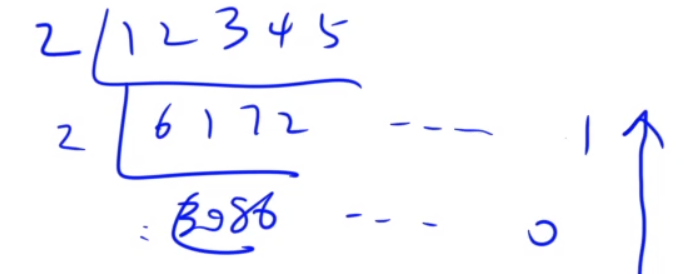 2 12345
2 6172 ---- 1
: 3086 ---- 0